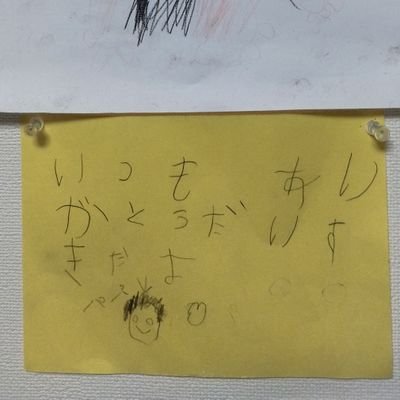 いつも あり
がとうだ いす
きだよ